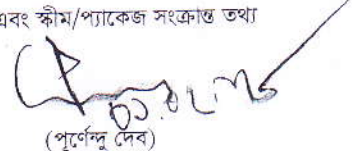 এবং স্কীম/প্যাকেজ সংক্রান্ত তথ্য
(পূর্ণেন্দু দেব)